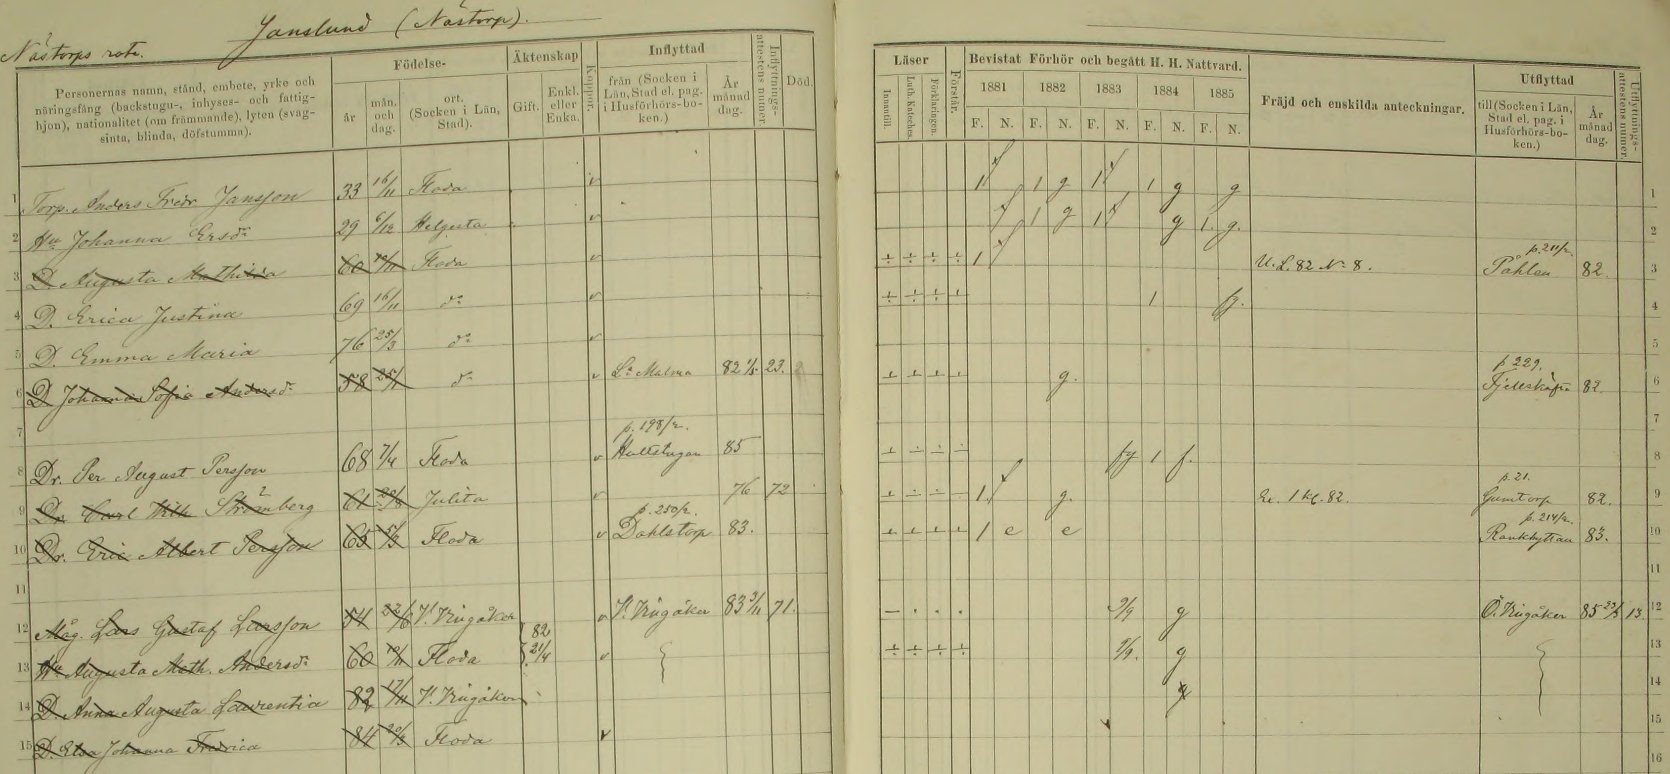 Janslund (Nästorp).
Nästorps rote.
Personernas namn, stånd, embete, yrke och näringsfång (backstugu-, inhyses- och fattighjon), nationalitet (om främmande), lyten (svagsinta, blinda, döfstumma).
Födelse-
år
mån. och dag.
ort. (Socken i Län, Stad).
Äktenskap
Gift.
Enkl. eller Enka.
Koppor.
Inflyttad
från (Socken i Län, Stad el. pag. i Husförhörs-boken.)
År månad dag.
Inflyttnings-attestens numer.
Död.
Läser
Innantill.
Luth. Kateches.
Förklaringen.
Förstår.
Bevistat Förhör och begått H. H. Nattvard.
1881 1882 1883 1884 1885
F. N. F. N. F. N. F. N. F. N.
Fräjd och enskilda anteckningar.
Utflyttad
till (Socken i Län, Stad el. pag. i Husförhörs-boken.)
År månad dag.
Utflyttnings-attestens numer.
1 Torp. Anders Fredr Jansson 33 16/11 Floda v 1 1 g 1 1 g g 1
2 Hu Johanna Ersdr 29 6/12 Helgesta v 1 g 1 g 1. g. 2
p. 211/2.
3 D. Augusta Mathilda 60 10/11 Floda v 1 U. L. 82 No 8. Påhlen 82. 3
4 D. Erica Justina 69 16/11 do v 1 4
5 D. Emma Maria 76 25/3 do v 5
p 229.
6 D Johanna Sofia Andersdr 58 25/1 do v La Malma 82 23. g. 82. 6
7 7
p. 198/2.
8 Dr. Per August Persson 68 7/4 Floda v 85 1 8
p. 21.
9 Dr. Carl Wilh Strömberg 61 Julita v 76 72 1 g. 1 kl. 82. Gumtorp 82. 9
p. 250/2. p. 214/2.
10 Dr. Eric Albert Persson 65 5/3 Floda v Dahlstorp 83. 1 e e 83. 10
11 11
12 Måg. Lars Gustaf Larsson 54 22/6 V. Vingåker v V. Vingåker 83 71. g Ö. Vingåker 85 13 12
82
13 Hu Augusta Math. Andersdr 60 10/11 Floda 21/4 v g 13
14 D. Anna Augusta Laurentia 82 17/11 V. Vingåker g 14
15 D. Elsa Johanna Fredrica 84 20/3 Floda v 15
16